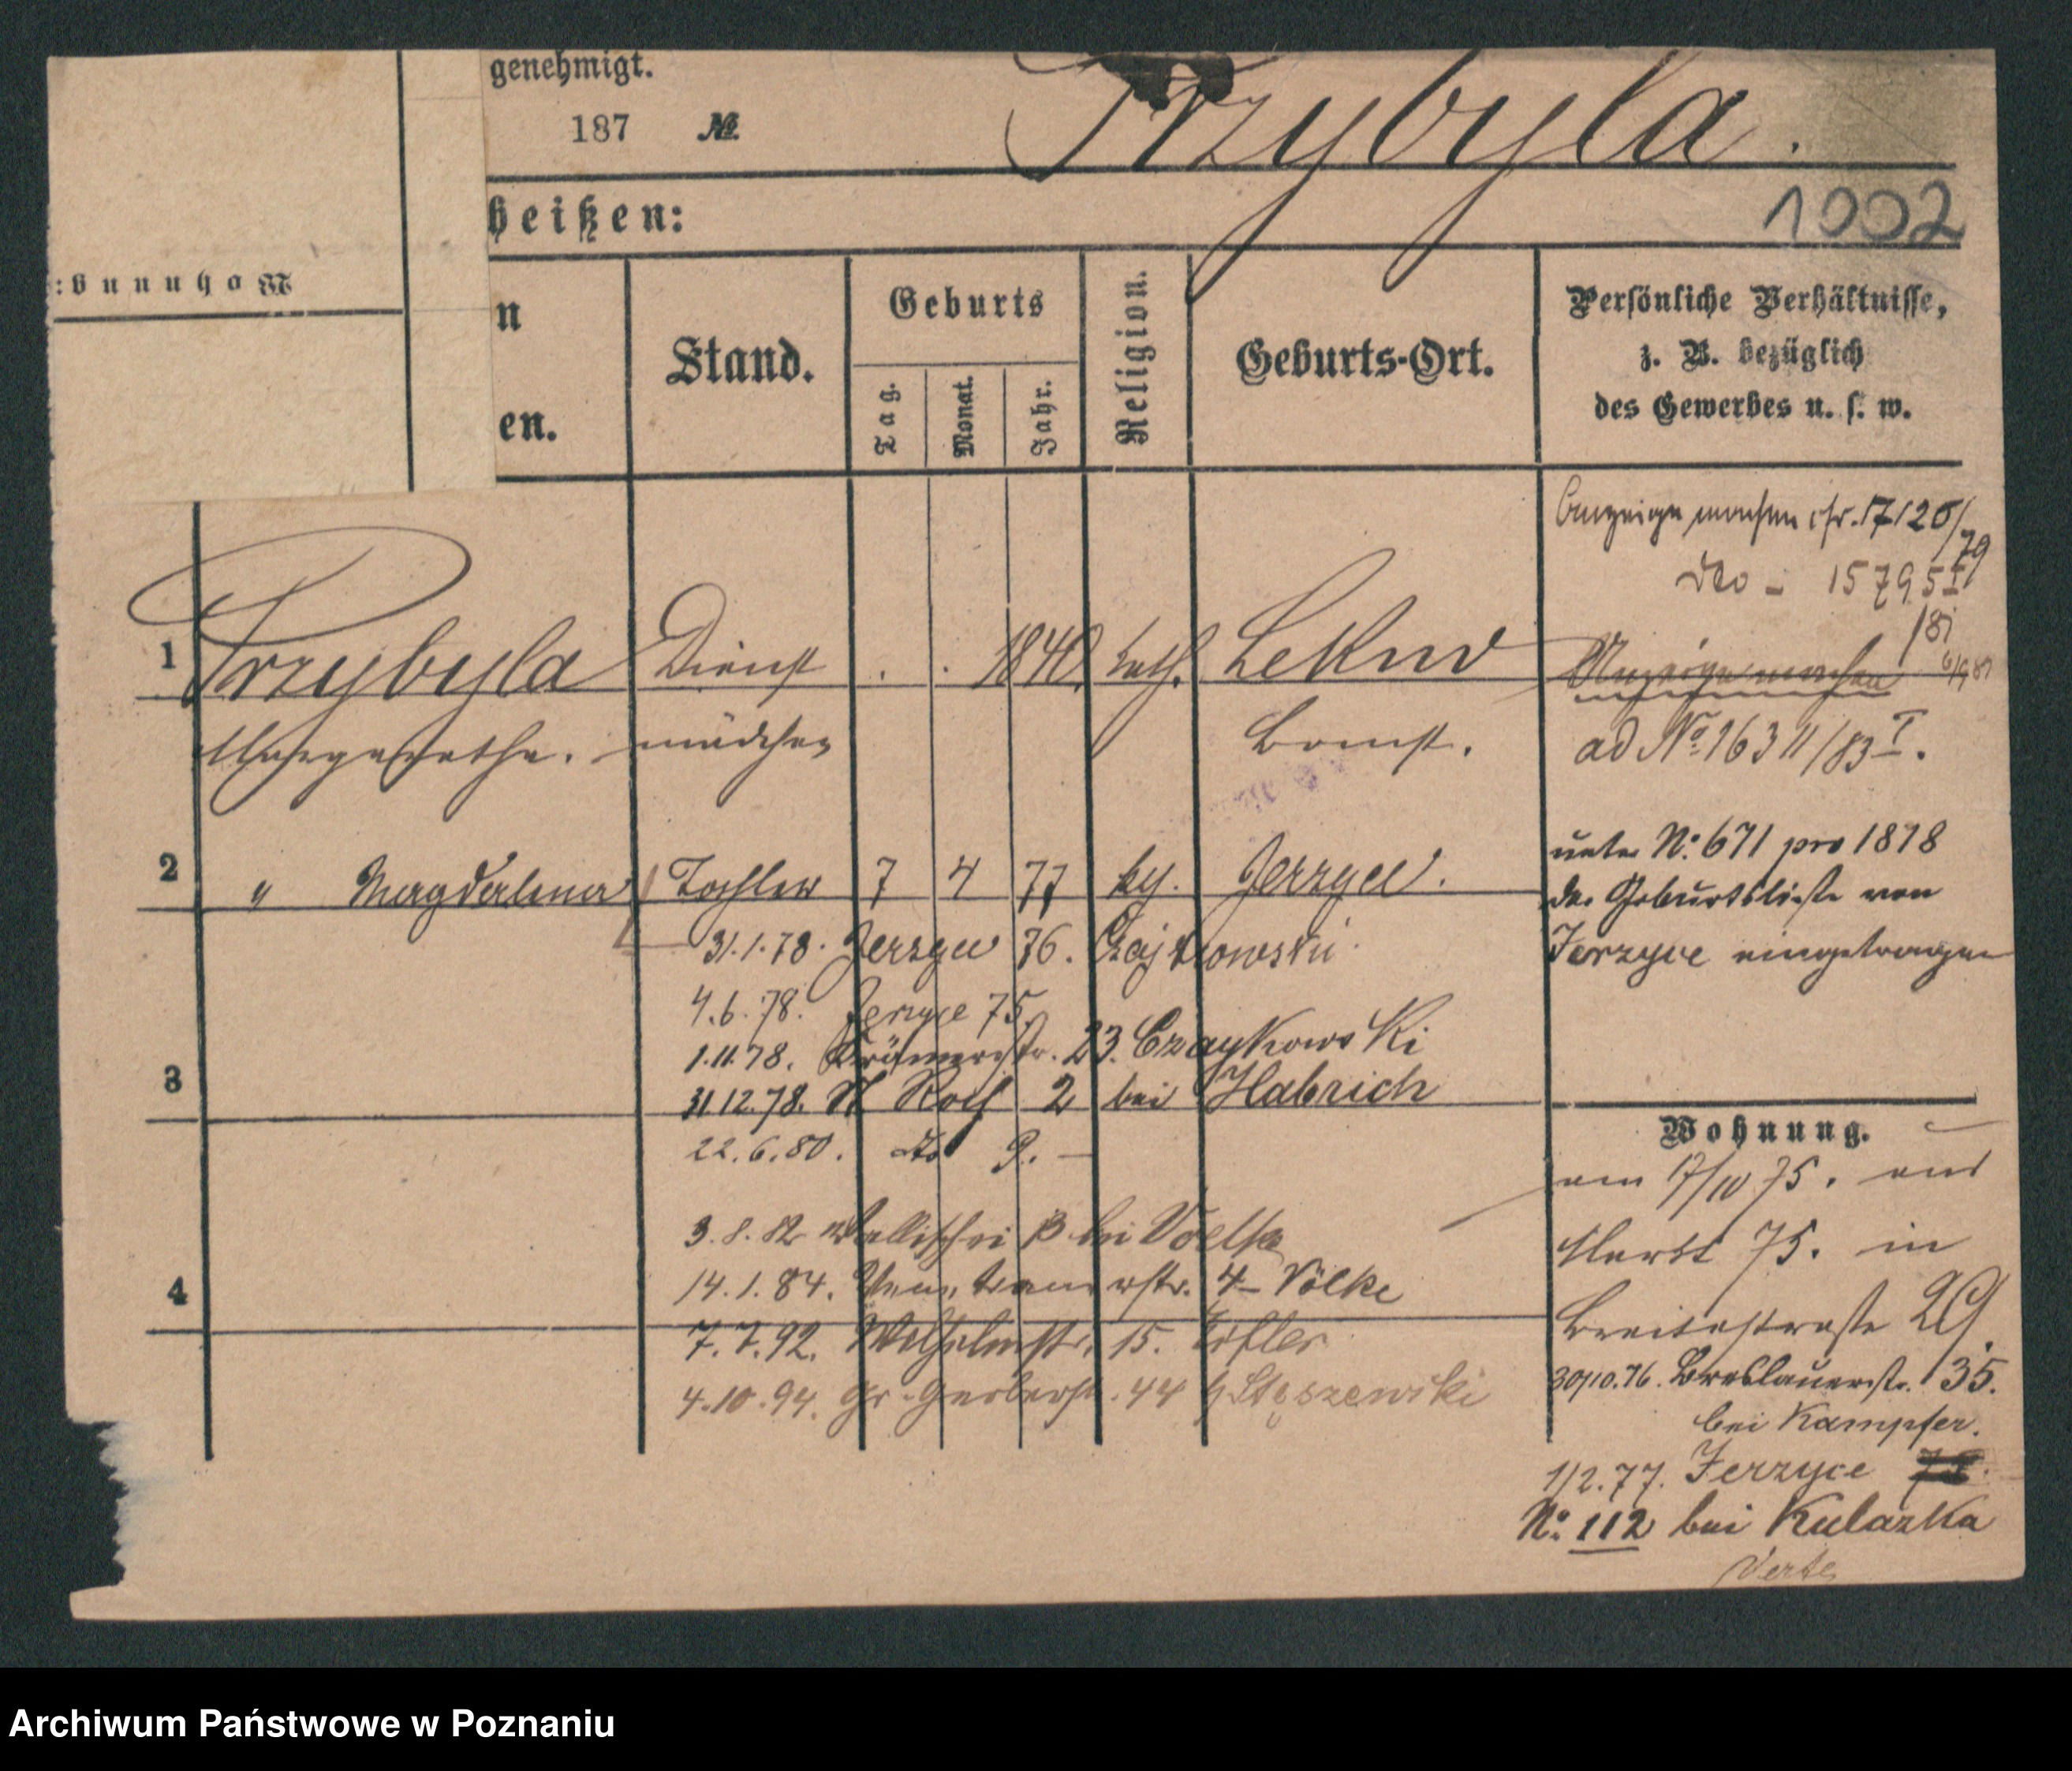 genehmigt.
187 № Przybyla.
heißen:
1002
Wohnung:
n
en.
Stand.
Geburts
Tag.
Monat.
Jahr.
Religion.
Geburts-Ort.
Persönliche Verhältnisse,
z. B. bezüglich
des Gewerbes u. s. w.
Anzeige machen cfr. 17120/79
do – 15795 I
/81
1 Przybyla Dienst . . 1840. kath.
Anzeige machen
Margarethe. mädchen Bomst.
ad No 16311/83 I.
2 " Magdalena Tochter 7 4 77 k. Jerzyce.
unter No. 671 pro 1878
der Geburtsliste von
Jerzyce eingetragen
31.1.78. Jerzyce 76. Czajkowski
4.6.78. Jerzyce 75.
1.11.78. Krämerstr. 23. Czaykowski
3
31.12.78. St Roch 2 bei Habrich
22.6.80. do 9. –
3.8.82 Wallischei bei Voelke
14.1.84. 4 – Völke
4
7.7.92. Wilhelmstr. 15.
4.10.94. Gr. Gerberstr. 44 Stęszewski
Wohnung.
am 17/10 75. aus
Markt 75. in
Breitestraße 29.
30/10.76. Breslauerstr. 35.
bei Kampfer.
1/2.77. Jerzyce
No. 112 bei Kulazka
Verte
Archiwum Państwowe w Poznaniu